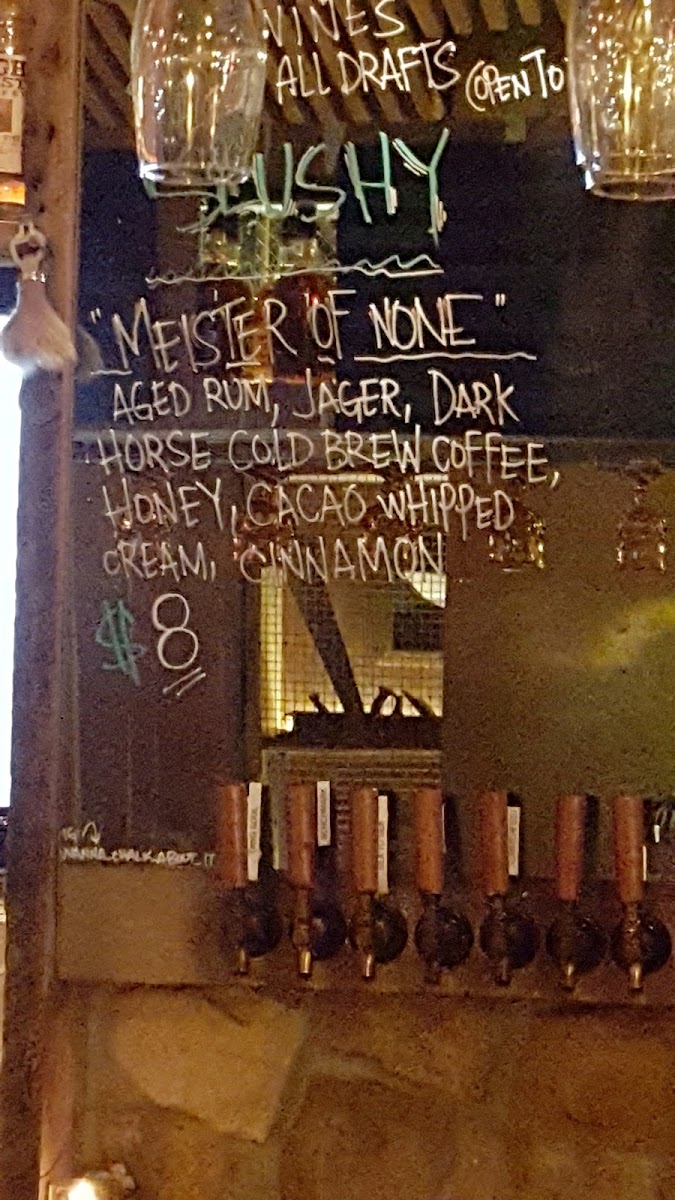 ALL DRAFTS (OPEN TO
SLUSHY
"MEISTER OF NONE"
AGED RUM, JAGER, DARK
HORSE COLD BREW COFFEE,
HONEY, CACAO WHIPPED
CREAM, CINNAMON
$8
WANNA CHALK ABOUT IT